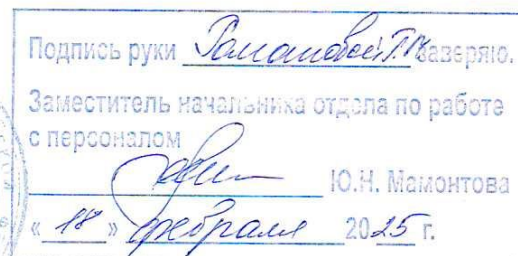 Подпись руки Романовой Г.М. заверяю.
Заместитель начальника отдела по работе
с персоналом
Ю.Н. Мамонтова
« 18 » февраля 2025 г.